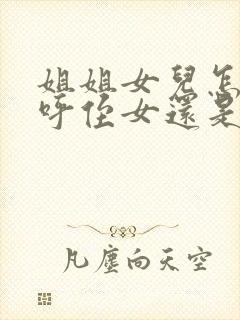 姐姐女兒怎
呼侄女還是
凡塵向天空